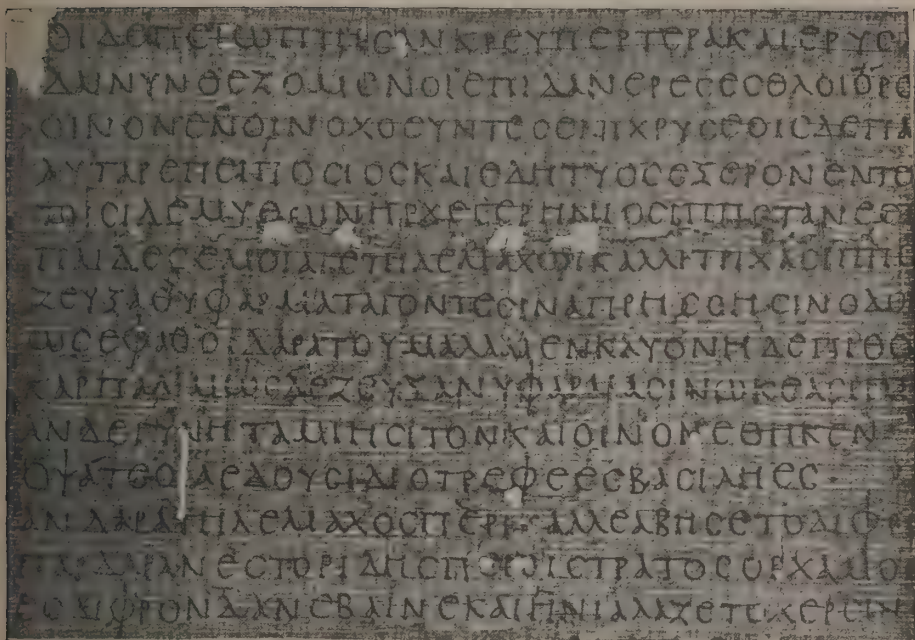 ΟΙΔΕΠΕΙΩΠΤΗϹΑΝΚΡΕΥΠΕΡΤΕΡΑΚΑΙΕΡΥϹ
ΔΑΙΝΥΝΘΕΖΟΜΕΝΟΙΕΠΙΔΑΝΕΡΕϹΕϹΘΛΟΙΟΡΟ
ΟΙΝΟΝΕΝΟΙΝΟΧΟΕΥΝΤΕϹΕΝΙΧΡΥϹΕΟΙϹΔΕΠΑ
ΑΥΤΑΡΕΠΕΙΠΟϹΙΟϹΚΑΙΕΔΗΤΥΟϹΕΞΕΡΟΝΕΝΤΟ
ΤΟΙϹΙΔΕΜΥΘΩΝΗΡΧΕΓΕΡΗΝΙΟϹΙΠΠΟΤΑΝΕϹ
ΠΑΙΔΕϹΕΜΟΙΑΓΕΤΗΛΕΜΑΧΩΙΚΑΛΛΙΤΡΙΧΑϹΙΠΠ
ΖΕΥΞΑΘΥΦΑΡΜΑΤΑΓΟΝΤΕϹΙΝΑΠΡΗϹϹΗϹΙΝΟΔΟ
ΩϹΕΦΑΘΟΙΔΑΡΑΤΟΥΜΑΛΑΜΕΝΚΛΥΟΝΗΔΕΠΙΘΟ
ΚΑΡΠΑΛΙΜΩϹΔΕΖΕΥΞΑΝΥΦΑΡΜΑϹΙΝΩΚΕΑϹΙΠΠ
ΑΝΔΕΓΥΝΗΤΑΜΙΗϹΙΤΟΝΚΑΙΟΙΝΟΝΕΘΗΚΕΝ
ΟΨΑΤΕΟΙΑΕΔΟΥϹΙΔΙΟΤΡΕΦΕΕϹΒΑϹΙΛΗΕϹ
ΑΝΔΑΡΑΤΗΛΕΜΑΧΟϹΠΕΡΙΚΑΛΛΕΑΒΗϹΕΤΟΔΙΦΡ
ΠΑΡΔΑΡΑΝΕϹΤΟΡΙΔΗϹΠΕΙϹΙϹΤΡΑΤΟϹΟΡΧΑΜΟ
ΕϹΔΙΦΡΟΝΔΑΝΕΒΑΙΝΕΚΑΙΗΝΙΑΛΑΖΕΤΟΧΕΡϹΙΝ